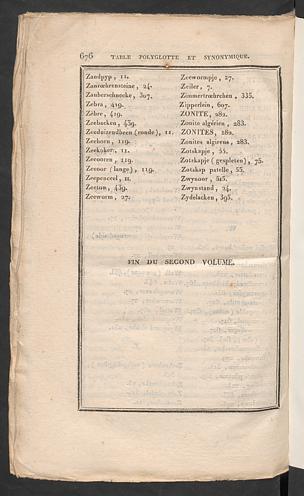 676 TABLE POLYGLOTTE ET SYNONYMIQUE.
Zandpyp, 11.
Zauberschnecke, 307.
Zebra, 419.
Zèbre, 419.
Zeebacken, 439.
Zeeduizendbeen (ronde), 11.
Zeehorn, 119.
Zeekoker, 11.
Zeeooren, 119.
Zeeoor (lange), 119.
Zeepenceel, 11.
Zeeton, 439.
Zeeworm, 27.
Zeewormpje, 27.
Zeiler, 7.
Zimmertrœhrchen, 335.
Zipperlein, 607.
ZONITE, 282.
Zonite algérien, 283.
ZONITES, 282.
Zonites algirus, 283.
Zotskapje, 55.
Zotskapje (gespleten), 75.
Zotskap patelle, 55.
Zwynoor, 525.
Zwynstand, 24.
Zydelacken, 395.
FIN DU SECOND VOLUME.